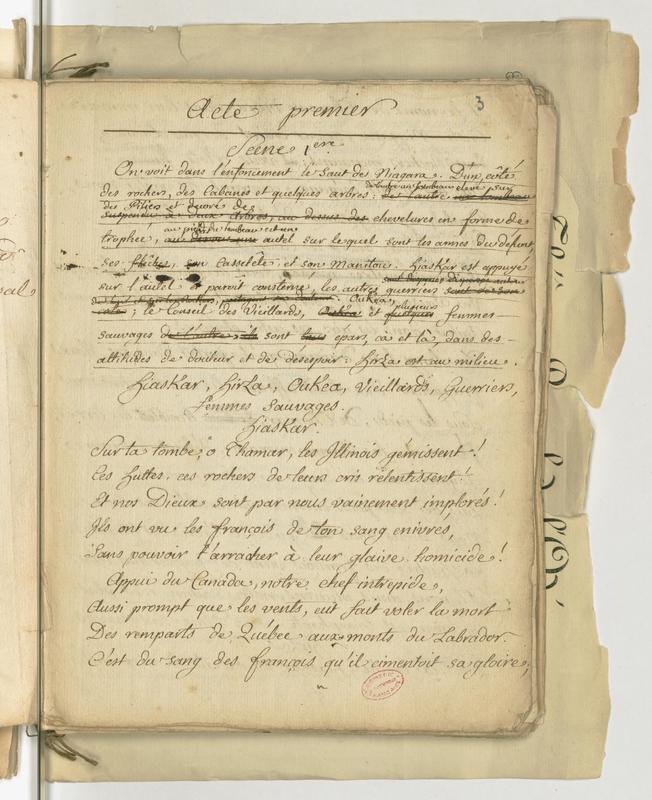 3
Acte premier
Scene 1ere
On voit dans l'enfoncement le Saut de Niagara. D'un côté
des rochers, des Cabanes et quelques arbres: de l'autre un tombeau elevé sur
des Piliers et decoré de
suspendu a deux Arbres, au dessus des chevelures en forme de
au pied du tombeau est un
trophée, autel sur lequel sont les armes du défunt
ses fléches, son Casseteté et son Manitou. Hiaskar est appuyé
sur l'autel et paroit consterné, les autres guerriers
Oukéa, plusieurs
; le Conseil des Vieillards, Oukéa et quelques femmes
sauvages de l'autre; ils sont tous epars, ça et là, dans des
attitudes de douleur et de désespoir: Hirza est au milieu.
Hiaskar, Hirza, Oukéa, Vieillards, Guerriers,
femmes sauvages.
Hiaskar.
Sur ta tombe, o Thamar, les Illinois gémissent!
Ces huttes, ces rochers de leurs cris retentissent!
Et nos Dieux sont par nous vainement implorés!
Ils ont vu les françois de ton sang enivrés,
Sans pouvoir t'arracher à leur glaive homicide!
Appui du Canada, notre chef intrepide,
Aussi prompt que les vents, eut fait voler la mort
Des remparts de Québec aux monts du Labrador.
C'est du sang des françois qu'il cimentoit sa gloire;